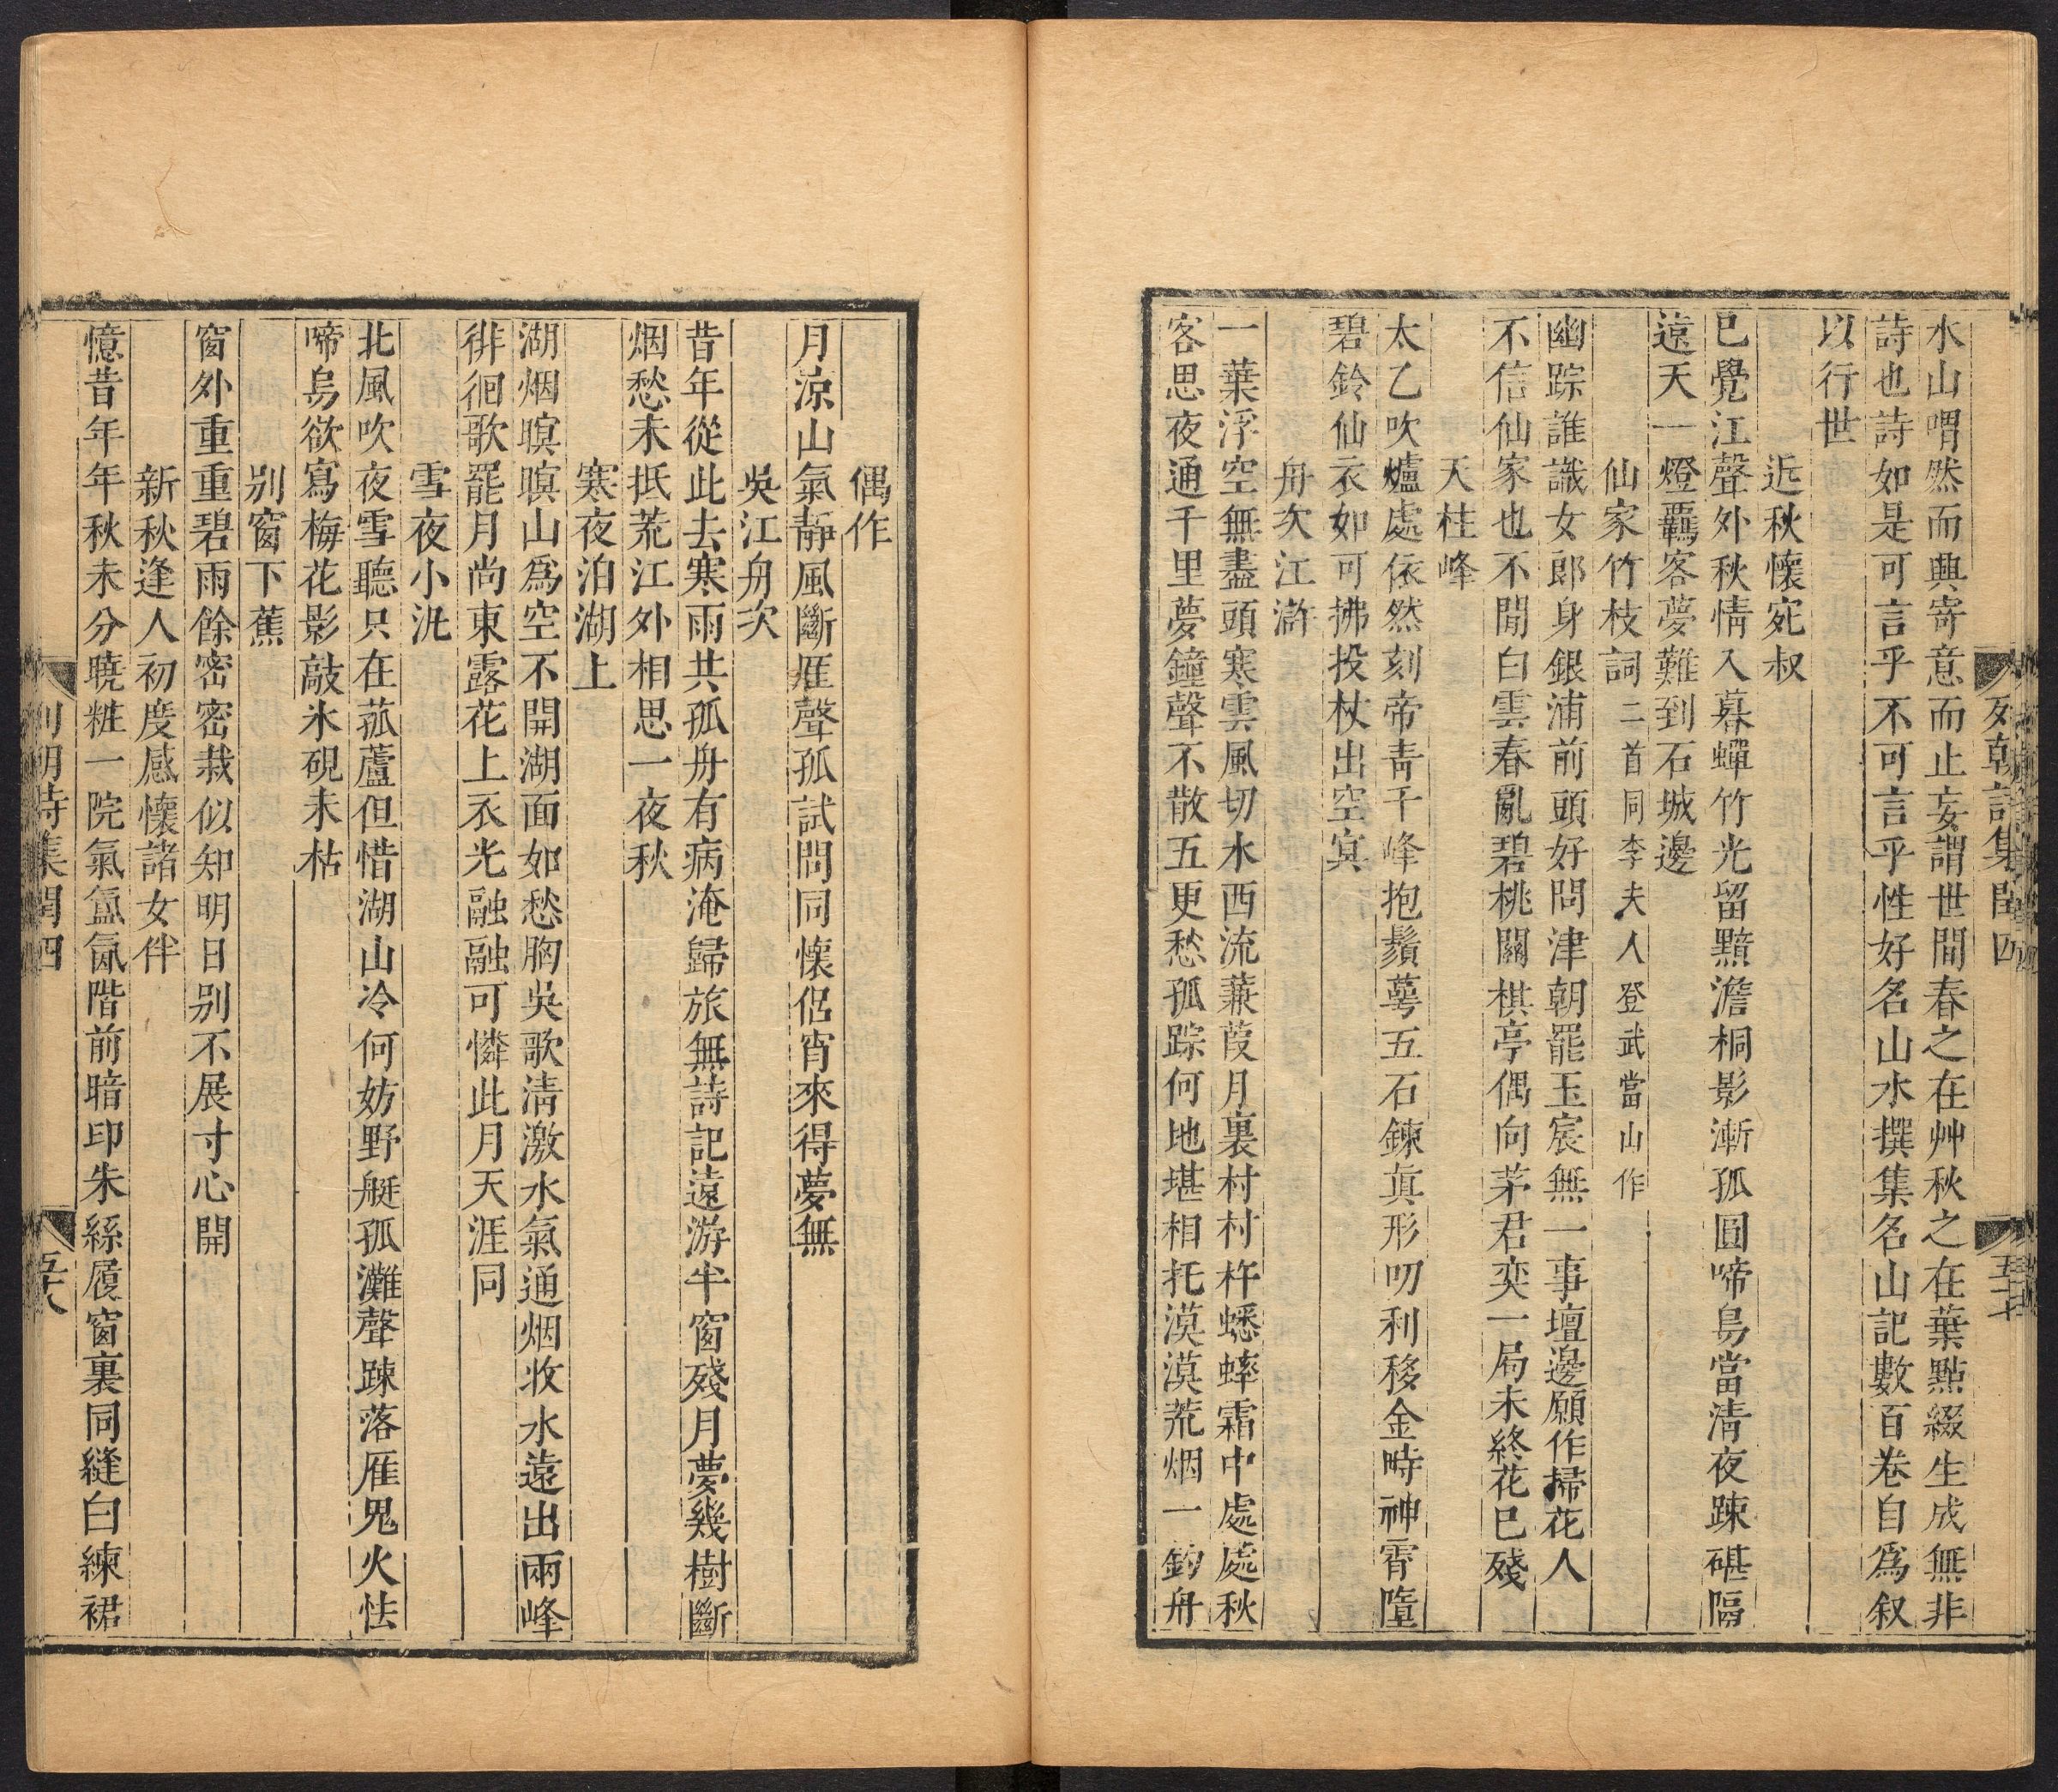 列朝詩集閏四
五十七
水山喟然而興寄意而止妄謂世間春之在艸秋之在葉點綴生成無非
詩也詩如是可言乎不可言乎性好名山水撰集名山記數百卷自爲叙
以行世
近秋懷宛叔
已覺江聲外秋情入暮蟬竹光留黯澹桐影漸孤圓啼鳥當清夜踈碪隔
遠天一燈羈客夢難到石城邊
仙家竹枝詞二首同李夫人登武當山作
幽踪誰識女郎身銀浦前頭好問津朝罷玉宸無一事壇邊願作掃花人
不信仙家也不閒白雲春亂碧桃關棋亭偶向茅君奕一局未終花已殘
天桂峰
太乙吹爐處依然刻帝青千峰抱鬚萼五石鍊眞形叨利移金時神霄墮
碧鈴仙衣如可拂投杖出空冥
舟次江滸
一葉浮空無盡頭寒雲風切水西流蒹葭月裏村村杵蟋蟀霜中處處秋
客思夜通千里夢鐘聲不散五更愁孤踪何地堪相托漠漠荒烟一釣舟
偶作
月涼山氣靜風斷雁聲孤試問同懷侶宵來得夢無
吳江舟次
昔年從此去寒雨共孤舟有病淹歸旅無詩記遠游半窗殘月夢幾樹斷
烟愁未抵荒江外相思一夜秋
寒夜泊湖上
湖烟暝暝山爲空不開湖面如愁胸吳歌清激水氣通烟收水遠出兩峰
徘徊歌罷月尚東露花上衣光融融可憐此月天涯同
雪夜小泚
北風吹夜雪聽只在菰蘆但惜湖山冷何妨野艇孤灘聲踈落雁鬼火怯
啼烏欲寫梅花影敲氷硯未枯
别窗下蕉
窗外重重碧雨餘密密栽似知明日别不展寸心開
新秋逢人初度感懷諸女伴
憶昔年年秋未分曉粧一院氣氳氤階前暗印朱絲履窗裏同縫白練裙
列朝詩集閏四
五十八